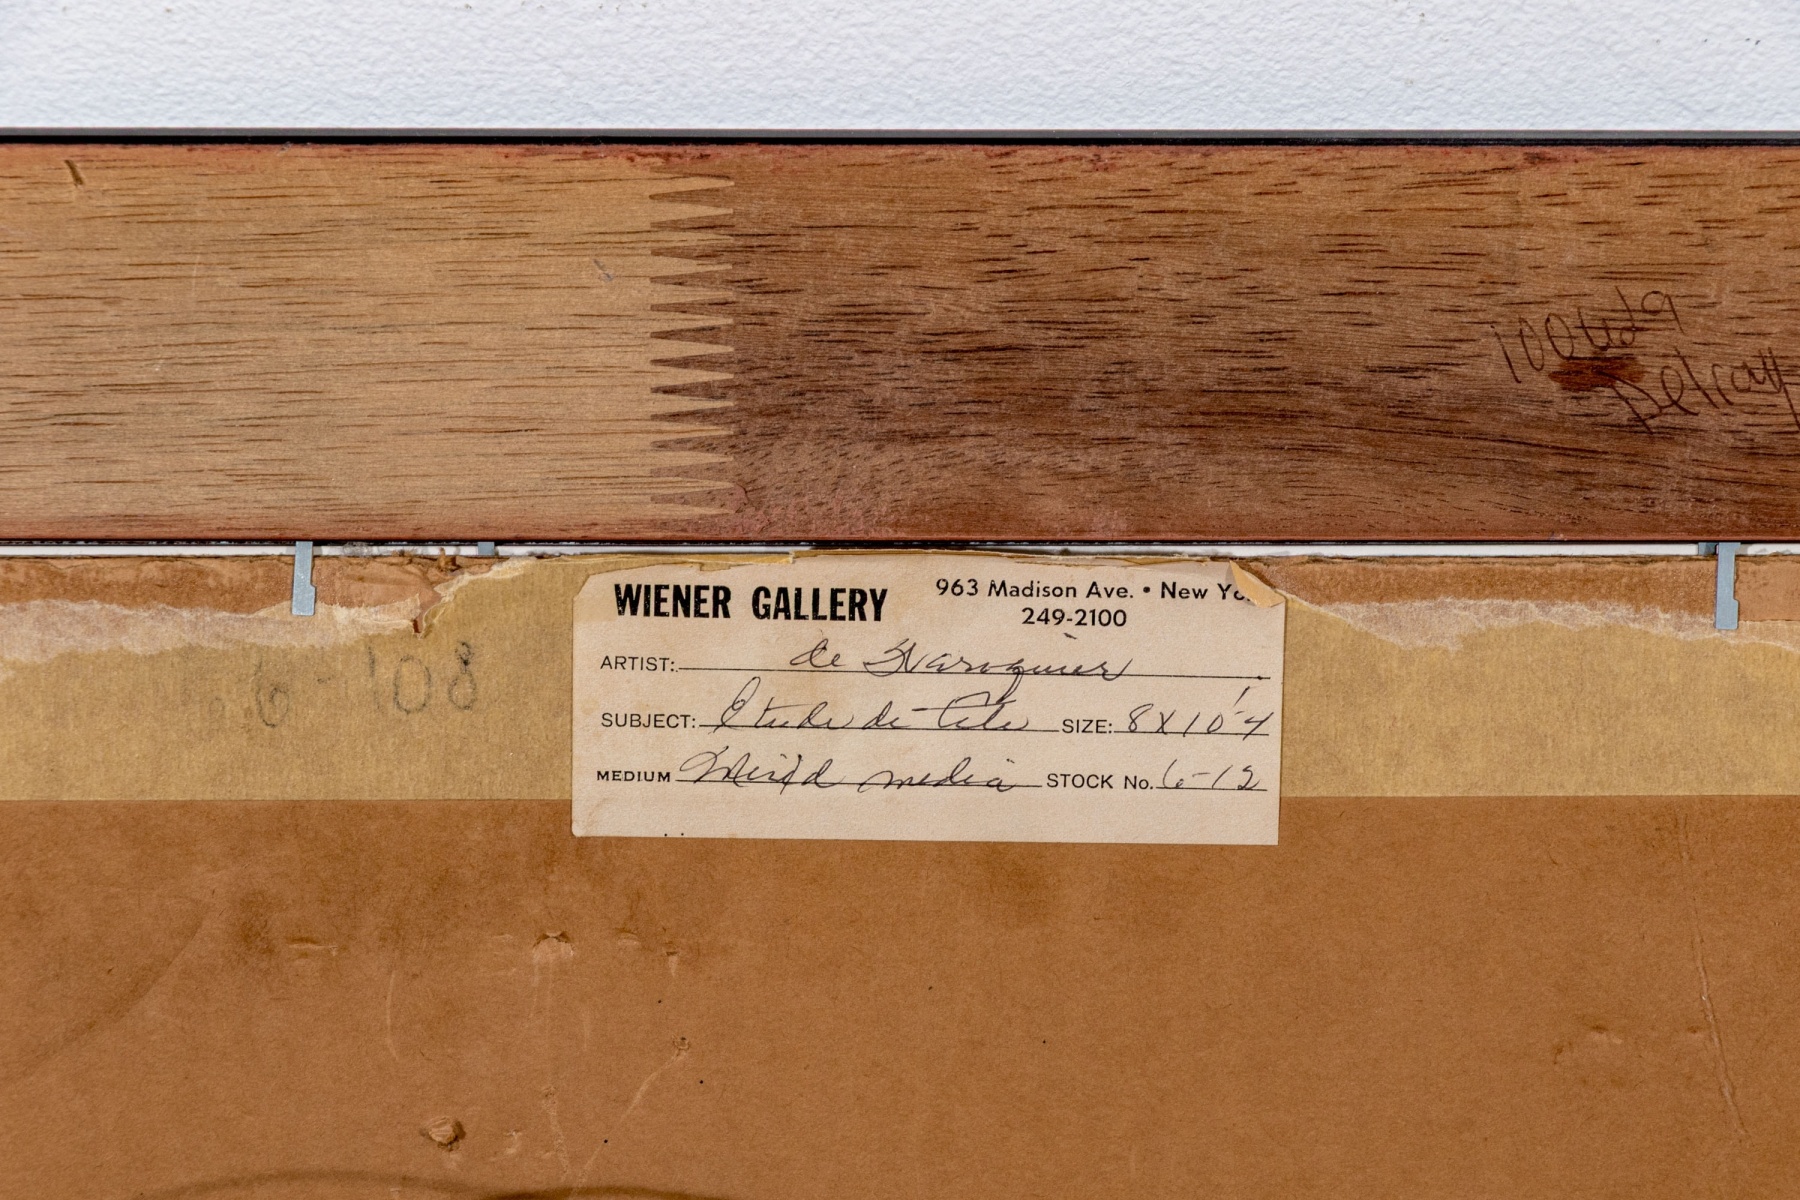 Delray
WIENER GALLERY 963 Madison Ave. • New Yo
249-2100
ARTIST: de Waroquier
SUBJECT: Etude de Tête SIZE: 8 X 10
MEDIUM Mixed media STOCK No. 6-12
6-108